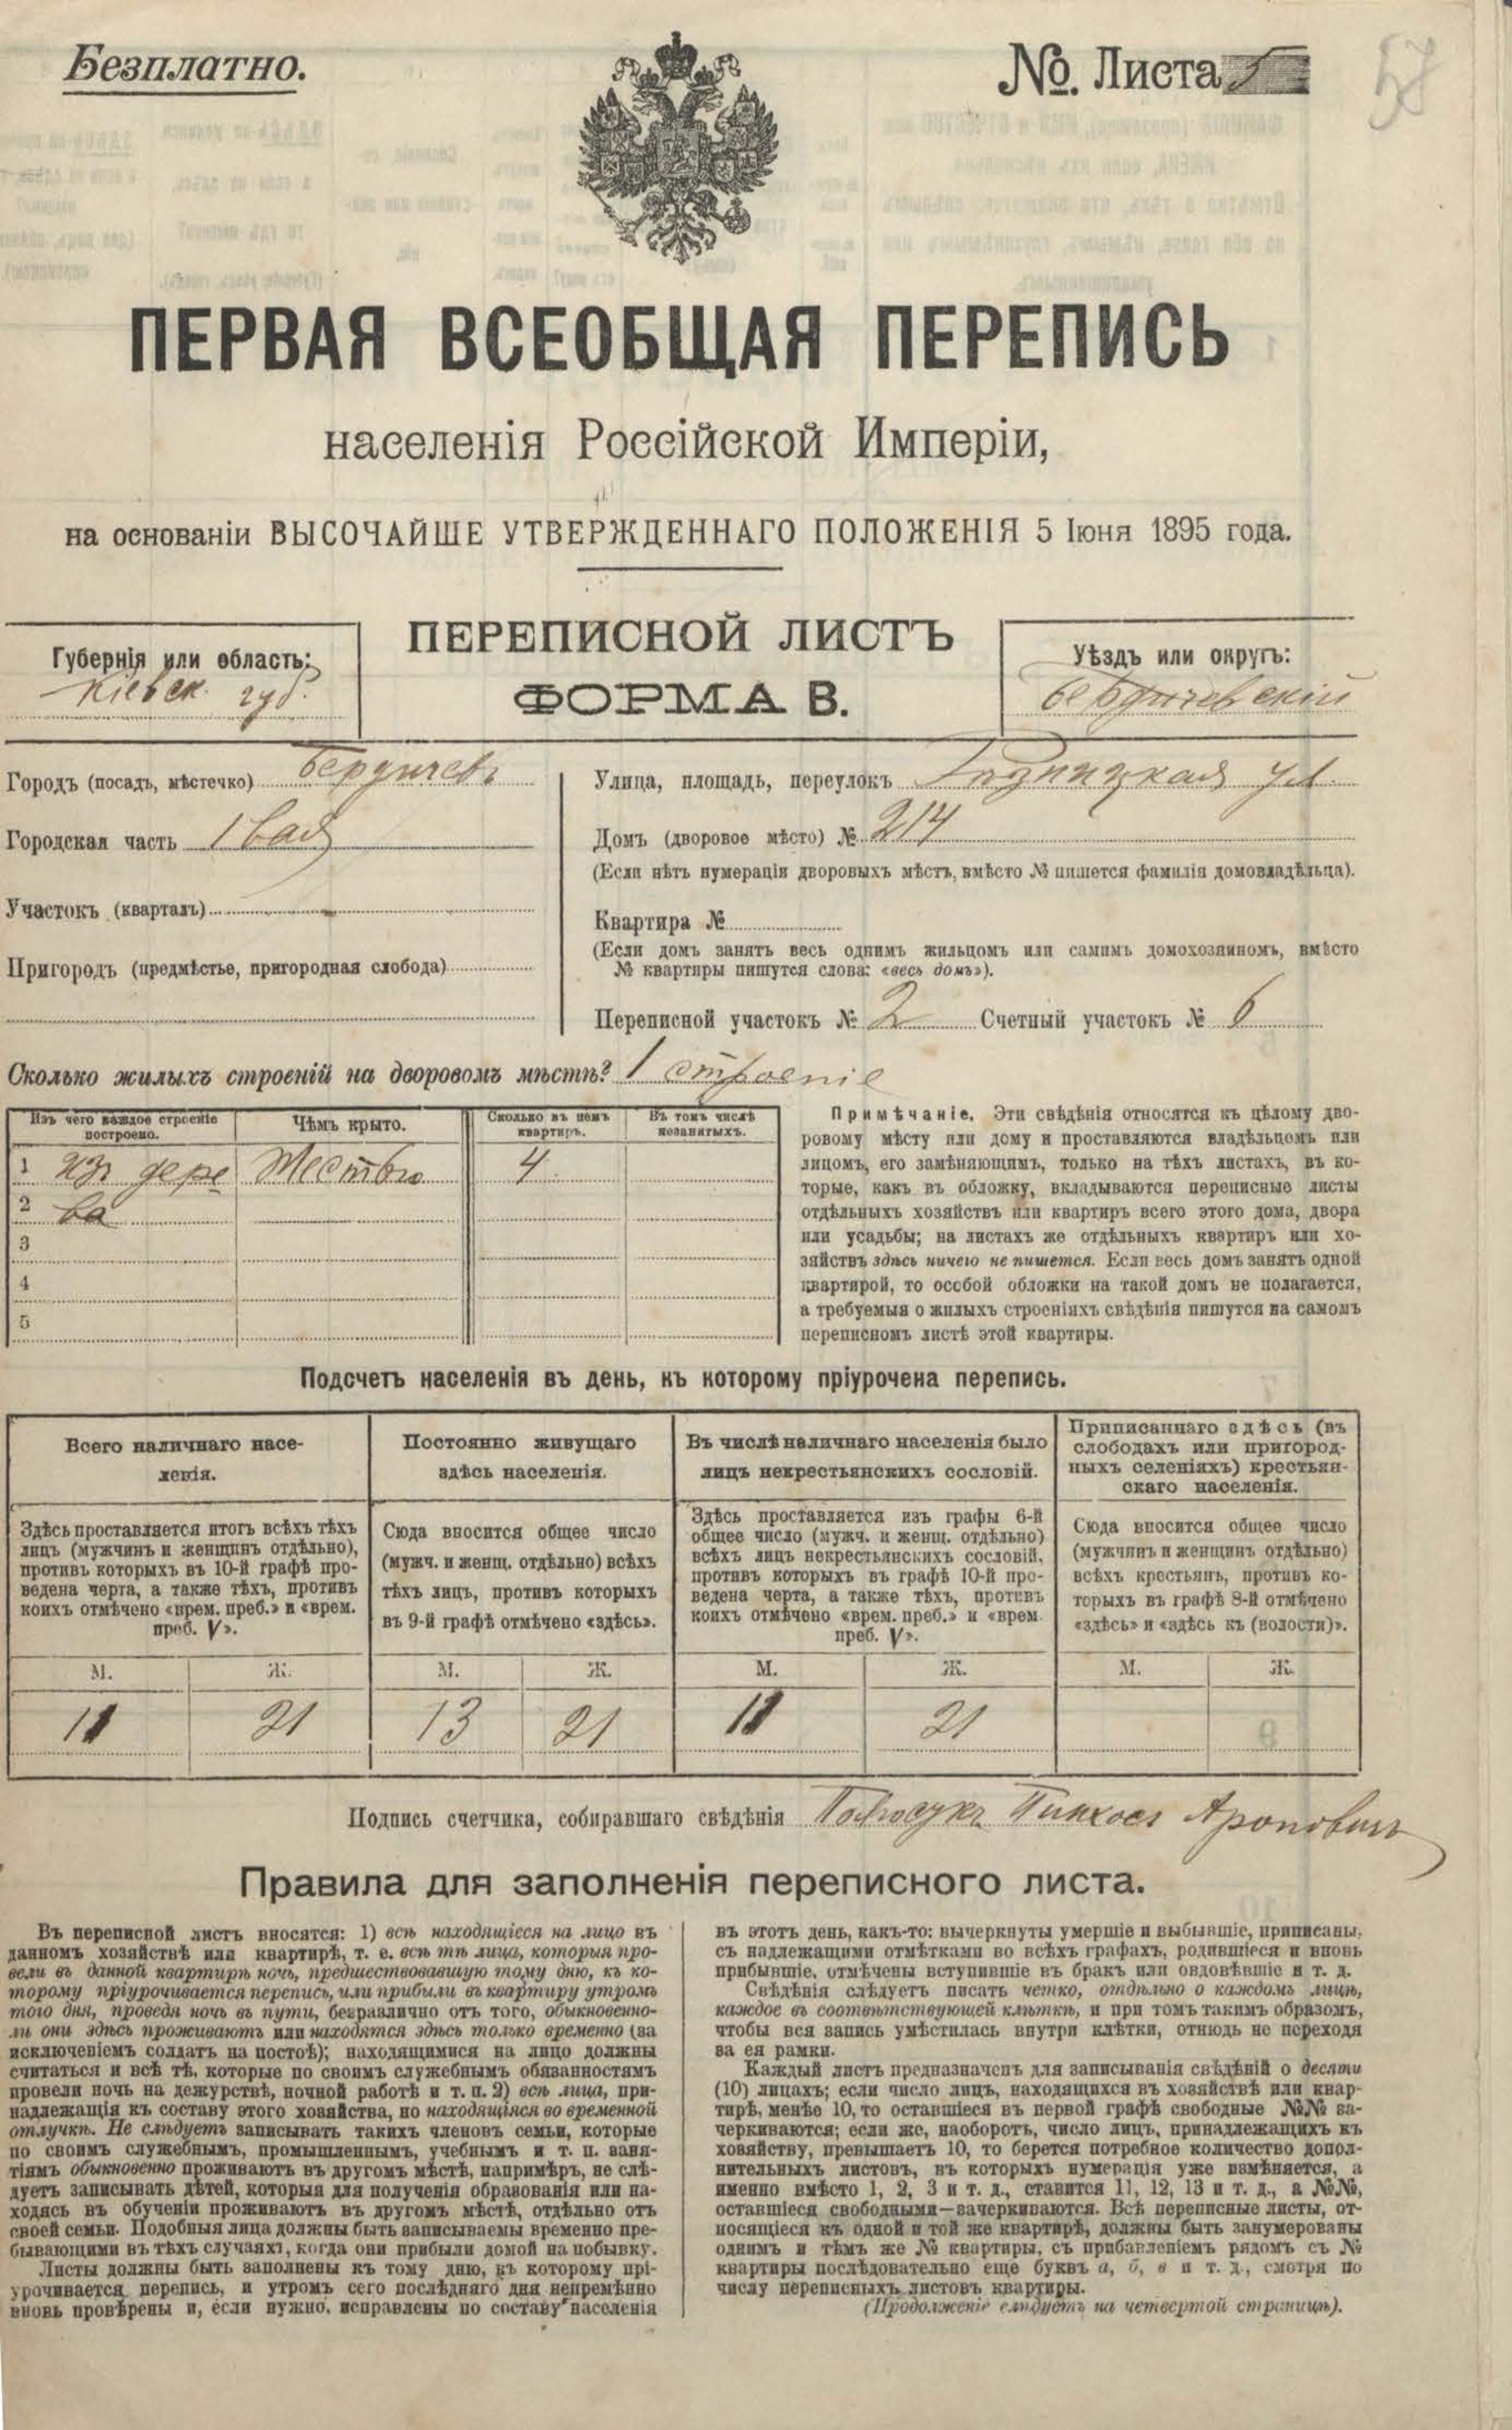 Безплатно.
№. Листа
57
ПЕРВАЯ ВСЕОБЩАЯ ПЕРЕПИСЬ
населенія Россійской Имперіи,
на основаніи ВЫСОЧАЙШЕ УТВЕРЖДЕННАГО ПОЛОЖЕНІЯ 5 Іюня 1895 года.
ПЕРЕПИСНОЙ ЛИСТЪ
ФОРМА В.
Губернія или область:
Кіевск. губ.
Уѣздъ или округъ:
бердичевскій
Городъ (посадъ, мѣстечко) Бердичевъ
Городская часть 1 вая
Участокъ (кварталъ)
Пригородъ (предмѣстье, пригородная слобода)
Улица, площадь, переулокъ ул.
Домъ (дворовое мѣсто) № 214
(Если нѣтъ нумераціи дворовыхъ мѣстъ, вмѣсто № пишется фамилія домовладѣльца).
Квартира №
(Если домъ занятъ весь однимъ жильцомъ или самимъ домохозяиномъ, вмѣсто
№ квартиры пишутся слова: «весь домъ»).
Переписной участокъ № 2 Счетный участокъ № 6
Сколько жилыхъ строеній на дворовомъ мѣстѣ? 1 строеніе
Изъ чего каждое строеніе построено.
Чѣмъ крыто.
Сколько въ немъ квартиръ.
Въ томъ числѣ незанятыхъ.
1 изъ дере Жестью 4
2 ва
3
4
5
Примѣчаніе. Эти свѣдѣнія относятся къ цѣлому дво-
ровому мѣсту или дому и проставляются владѣльцемъ или
лицомъ, его замѣняющимъ, только на тѣхъ листахъ, въ ко-
торые, какъ въ обложку, вкладываются переписные листы
отдѣльныхъ хозяйствъ или квартиръ всего этого дома, двора
или усадьбы; на листахъ же отдѣльныхъ квартиръ или хо-
зяйствъ здѣсь ничего не пишется. Если весь домъ занятъ одной
квартирой, то особой обложки на такой домъ не полагается,
а требуемыя о жилыхъ строеніяхъ свѣдѣнія пишутся на самомъ
переписномъ листѣ этой квартиры.
Подсчетъ населенія въ день, къ которому пріурочена перепись.
Всего наличнаго насе-
ленія.
Постоянно живущаго
здѣсь населенія.
Въ числѣ наличнаго населенія было
лицъ некрестьянскихъ сословій.
Приписаннаго здѣсь (въ
слободахъ или пригород-
ныхъ селеніяхъ) крестьян-
скаго населенія.
Здѣсь проставляется итогъ всѣхъ тѣхъ
лицъ (мужчинъ и женщинъ отдѣльно),
противъ которыхъ въ 10-й графѣ про-
ведена черта, а также тѣхъ, противъ
коихъ отмѣчено «врем. преб.» и «врем.
преб. V».
Сюда вносится общее число
(мужч. и женщ. отдѣльно) всѣхъ
тѣхъ лицъ, противъ которыхъ
въ 9-й графѣ отмѣчено «здѣсь».
Здѣсь проставляется изъ графы 6-й
общее число (мужч. и женщ. отдѣльно)
всѣхъ лицъ некрестьянскихъ сословій,
противъ которыхъ въ графѣ 10-й про-
ведена черта, а также тѣхъ, противъ
коихъ отмѣчено «врем. преб.» и «врем.
преб. V».
Сюда вносится общее число
(мужчинъ и женщинъ отдѣльно)
всѣхъ крестьянъ, противъ ко-
торыхъ въ графѣ 8-й отмѣчено
«здѣсь» и «здѣсь къ (волости)».
М. Ж. М. Ж. М. Ж. М. Ж.
11 21 13 21 11 21
Подпись счетчика, собиравшаго свѣдѣнія Пинхос Ароновичъ
Правила для заполненія переписного листа.
Въ переписной листъ вносятся: 1) всѣ находящіеся на лицо въ
данномъ хозяйствѣ или квартирѣ, т. е. всѣ тѣ лица, которыя про-
вели въ данной квартирѣ ночь, предшествовавшую тому дню, къ ко-
торому пріурочивается перепись, или прибыли въ квартиру утромъ
того дня, проведя ночь въ пути, безразлично отъ того, обыкновенно-
ли они здѣсь проживаютъ или находятся здѣсь только временно (за
исключеніемъ солдатъ на постоѣ); находящимися на лицо должны
считаться и всѣ тѣ, которые по своимъ служебнымъ обязанностямъ
провели ночь на дежурствѣ, ночной работѣ и т. п. 2) всѣ лица, при-
надлежащія къ составу этого хозяйства, но находящіяся во временной
отлучкѣ. Не слѣдуетъ записывать такихъ членовъ семьи, которые
по своимъ служебнымъ, промышленнымъ, учебнымъ и т. п. заня-
тіямъ обыкновенно проживаютъ въ другомъ мѣстѣ, напримѣръ, не слѣ-
дуетъ записывать дѣтей, которыя для полученія образованія или на-
ходясь въ обученіи проживаютъ въ другомъ мѣстѣ, отдѣльно отъ
своей семьи. Подобныя лица должны быть записываемы временно пре-
бывающими въ тѣхъ случаяхъ, когда они прибыли домой на побывку.
Листы должны быть заполнены къ тому дню, къ которому прі-
урочивается перепись, и утромъ сего послѣдняго дня непремѣнно
вновь провѣрены и, если нужно, исправлены по составу населенія
въ этотъ день, какъ-то: вычеркнуты умершіе и выбывшіе, приписаны,
съ надлежащими отмѣтками во всѣхъ графахъ, родившіеся и вновь
прибывшіе, отмѣчены вступившіе въ бракъ или овдовѣвшіе и т. д.
Свѣдѣнія слѣдуетъ писать четко, отдѣльно о каждомъ лицѣ,
каждое въ соотвѣтствующей клѣткѣ, и при томъ такимъ образомъ,
чтобы вся запись умѣстилась внутри клѣтки, отнюдь не переходя
за ея рамки.
Каждый листъ предназначенъ для записыванія свѣдѣній о десяти
(10) лицахъ; если число лицъ, находящихся въ хозяйствѣ или квар-
тирѣ, менѣе 10, то оставшіеся въ первой графѣ свободные №№ за-
черкиваются; если же, наоборотъ, число лицъ, принадлежащихъ къ
хозяйству, превышаетъ 10, то берется потребное количество допол-
нительныхъ листовъ, въ которыхъ нумерація уже измѣняется, а
именно вмѣсто 1, 2, 3 и т. д., ставится 11, 12, 13 и т. д., а №№,
оставшіеся свободными—зачеркиваются. Всѣ переписные листы, от-
носящіеся къ одной и той же квартирѣ, должны быть занумерованы
однимъ и тѣмъ же № квартиры, съ прибавленіемъ рядомъ съ №
квартиры послѣдовательно еще буквъ а, б, в и т. д., смотря по
числу переписныхъ листовъ квартиры.
(Продолженіе слѣдуетъ на четвертой страницѣ).